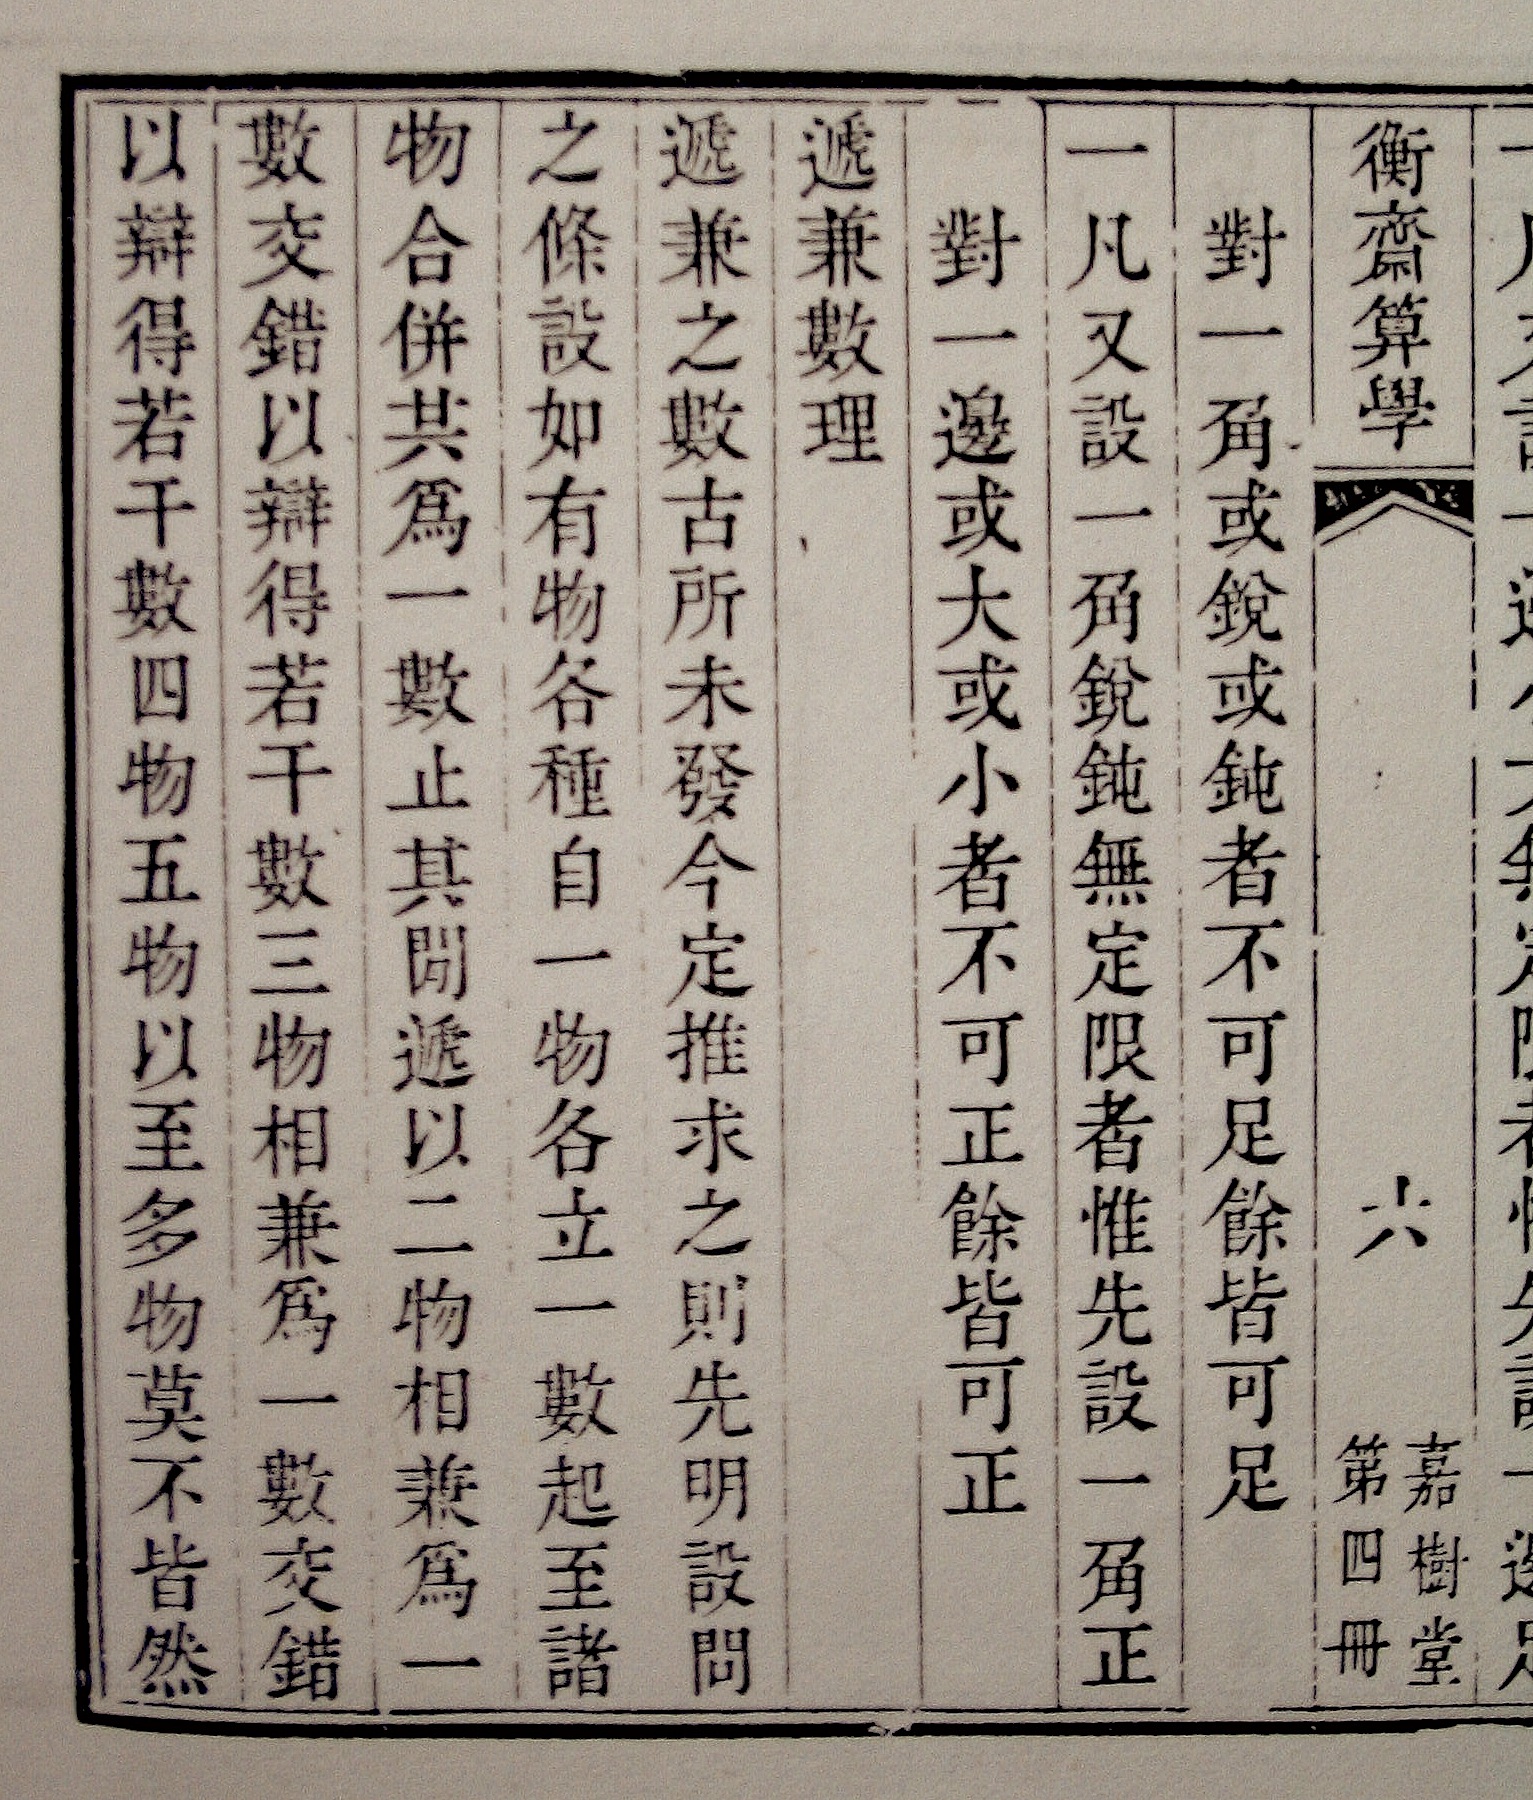 衡齋算學
六
嘉樹堂
第四冊
對一角或銳或鈍者不可足餘皆可足
一凡又設一角銳鈍無定限者惟先設一角正
對一邊或大或小者不可正餘皆可正
遞兼數理
遞兼之數古所未發今定推求之則先明設問
之條設如有物各種自一物各立一數起至諸
物合併共爲一數止其間遞以二物相兼爲一
數交錯以辯得若干數三物相兼爲一數交錯
以辯得若干數四物五物以至多物莫不皆然